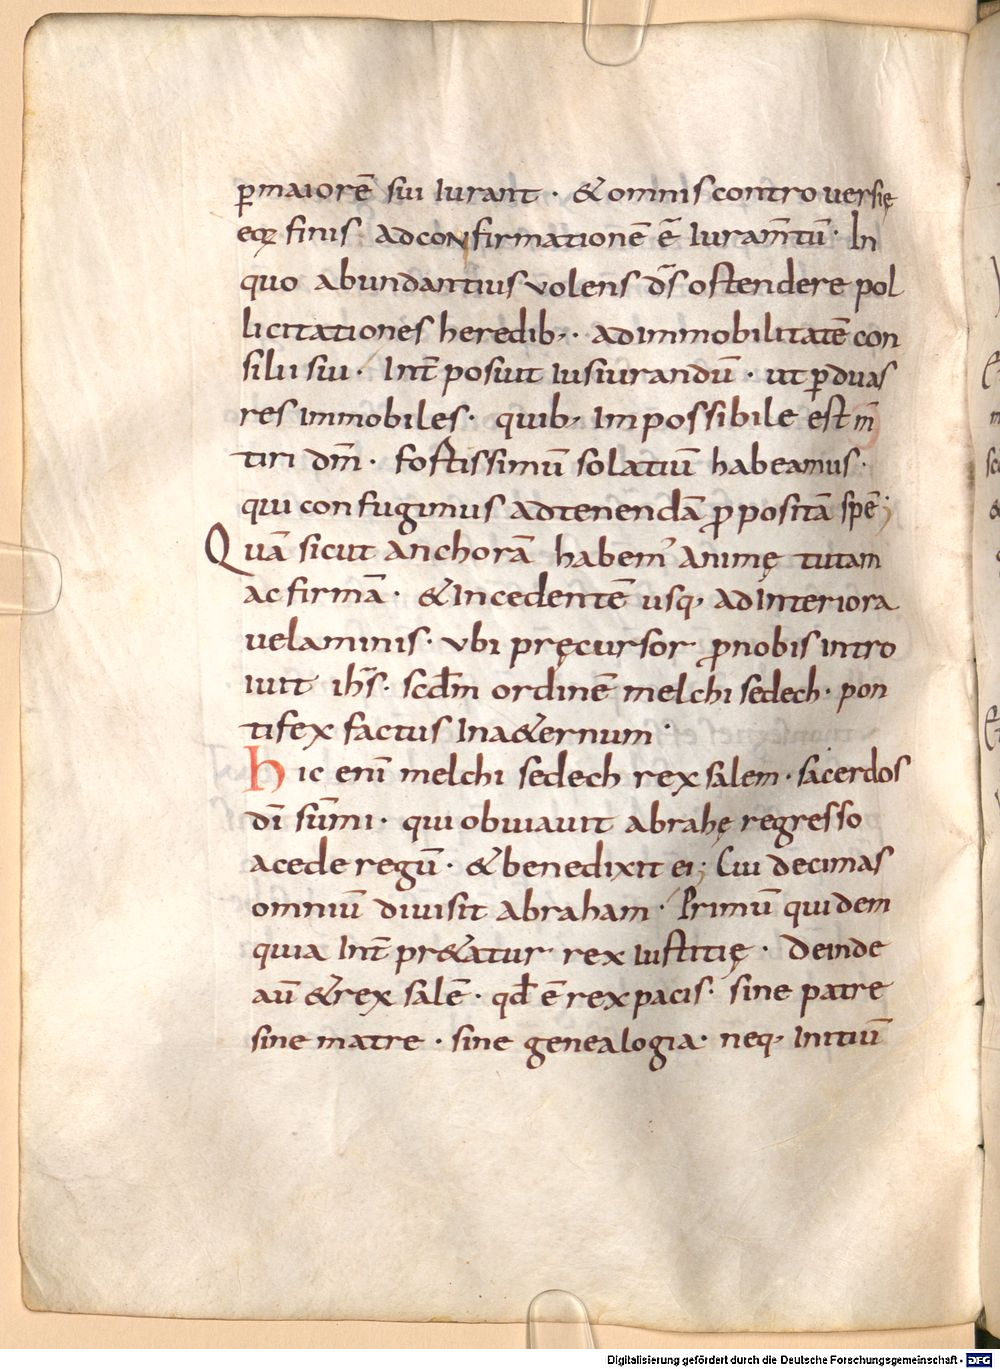 ꝑmaiorē sui iurant · & omnis controuersię
eoꝝ finis · adconfirmationē ē̃ iuram̄tū · In
quo abundantius volens d̄s ostendere pol
licitationes heredib; · adimmobilitatē con
silii sui · Int̄ posuit iusiurandū · ut ꝑduas
res immobiles · quib; impossibile est m̄
tiri dm̄ · fostissimū solatiū habeamus ·
qui confugimus adtenendā ꝓpositā spē;
Quā sicut anchorā habem᾽ animę tutam
ac firmā · & incedentē usq; adinteriora
uelaminis · vbi pręcursor ꝓnobis intro
iuit ih̄s · scd̄m ordinē melchisedech · pon
tifex factus ina&ernum ·
hic enī melchisedech rex salem · sacerdos
dī sūmi · qui obuiauit abrahę regresso
acede regū · & benedixit ei; Cui decimas
omniū diuisit abraham · Primū quidem
quia Int̄ pr&atur rex iustitię · deinde
aū & rex salē · qd̄ ē rex pacis · sine patre
sine matre · sine genealogia · neq; initiū
Digitalisierung gefördert durch die Deutsche Forschungsgemeinschaft - DFG